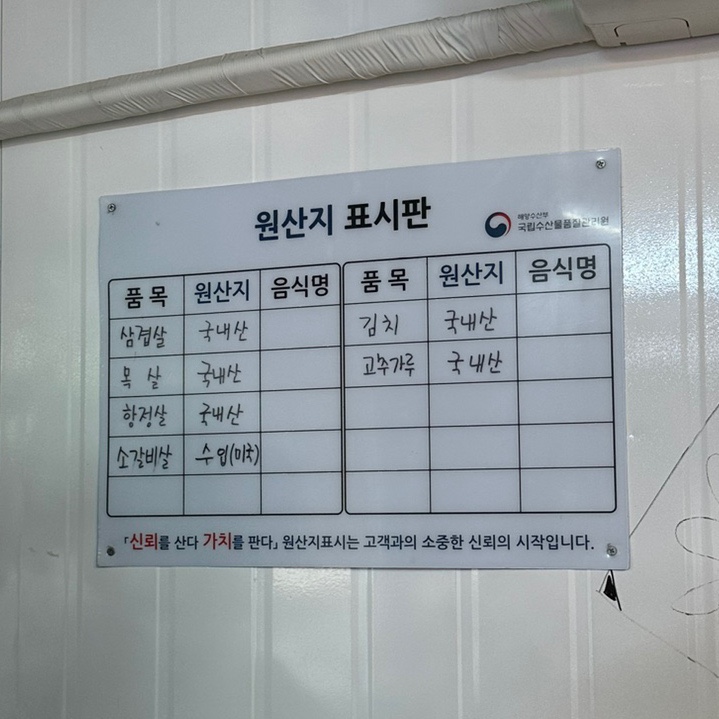 원산지 표시판
해양수산부
국립수산물품질관리원
품 목 원산지 음식명 품 목 원산지 음식명
삼겹살 국내산 김치 국내산
목 살 국내산 고추가루 국내산
항정살 국내산
소갈비살 수입(미국)
「신뢰를 산다 가치를 판다」 원산지표시는 고객과의 소중한 신뢰의 시작입니다.